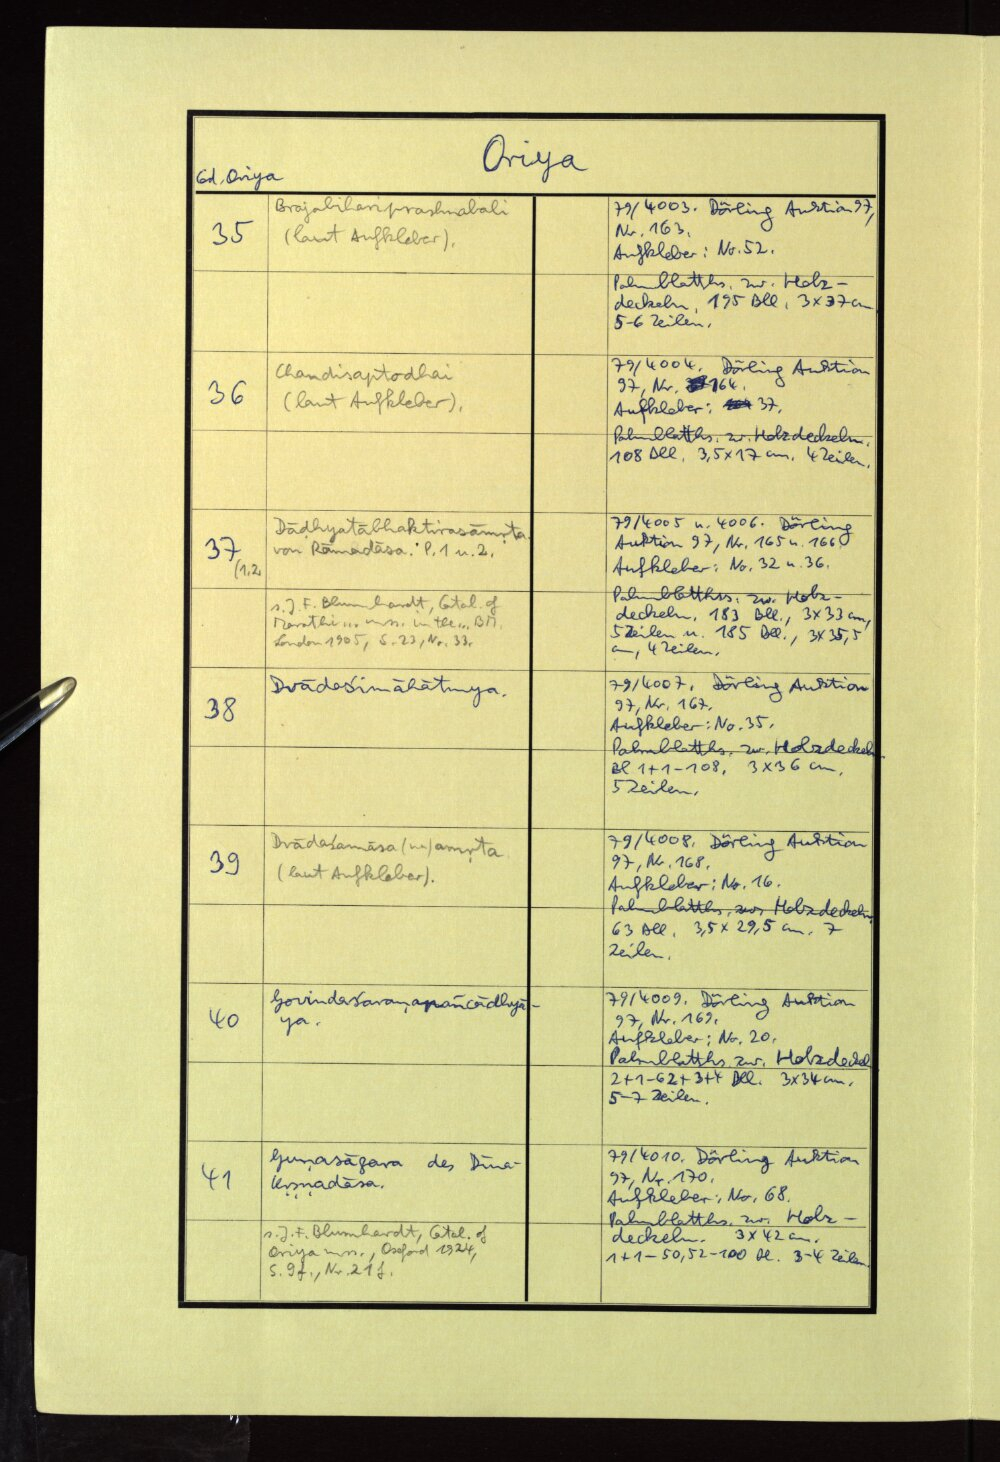 Oriya
Cd. Oriya
35
Brajabihariprashnabali
(laut Aufkleber).
79/4003. Dörling Auktion 97,
Nr. 163.
Aufkleber: No. 52.
Palmblatths. zw. Holz-
deckeln, 195 Bll, 3x37 cm
5-6 Zeilen.
36
Chandisaptodhai
(laut Aufkleber).
79/4004. Dörling Auktion
97, Nr. 164.
Aufkleber: 37.
Palmblatths. zw. Holzdeckeln.
108 Bll. 3,5x17 cm. 4 Zeilen.
37
(1.2.
Dāḍhyatābhaktirasāmṛta
von Rāmadāsa. P. 1 u. 2.
s. J. F. Blumhardt, Catal. of
Marathi... mss. in the... BM.
London 1905, S. 23, Nr. 33.
79/4005 u. 4006. Dörling
Auktion 97, Nr. 165 u. 166
Aufkleber: No. 32 u. 36.
Palmblatthss. zw. Holz-
deckeln. 183 Bll., 3x33 cm,
5 Zeilen u. 185 Bll., 3x35,5
cm, 4 Zeilen.
38
Dvādaśimāhātmya.
79/4007. Dörling Auktion
97, Nr. 167.
Aufkleber: No. 35.
Palmblatths. zw. Holzdeckeln.
Bl 1+1-108. 3x36 cm.
5 Zeilen.
39
Dvādaśamāsa(m)amṛta
(laut Aufkleber).
79/4008. Dörling Auktion
97, Nr. 168.
Aufkleber: No. 16.
Palmblatths. zw. Holzdeckeln
63 Bll. 3,5x29,5 cm. 7
Zeilen.
40
Govindaśaraṇapañcādhyā-
ya.
79/4009. Dörling Auktion
97, Nr. 169.
Aufkleber: No. 20.
Palmblatths. zw. Holzdeckel
2+1-62+3+4 Bll. 3x34 cm.
5-7 Zeilen.
41
Guṇasāgara des Dīna-
kṛṣṇadāsa.
s. J. F. Blumhardt, Catal. of
Oriya mss., Oxford 1924,
S. 9f., Nr. 21f.
79/4010. Dörling Auktion
97, Nr. 170.
Aufkleber: No. 68.
Palmblatths. zw. Holz-
deckeln. 3x42 cm.
1+1-50,52-100 Bl. 3-4 Zeilen.